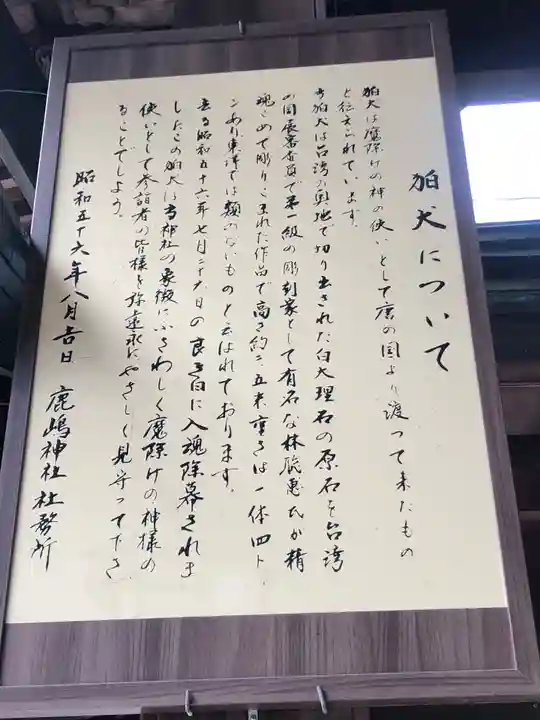 狛犬について
狛犬は魔除けの神の使いとして唐の国より渡って来たもの
と伝えられています。
当狛犬は台湾の奥地で切り出された白大理石の原石を台湾
の国展審査員で第一級の彫刻家として有名な林 惠氏が精
魂こめて彫りこまれた作品で高さ約二、五米重さは一体四ト
ンあり東洋では類のないものと云はれております。
去る昭和五十六年七月二十九日の良き日に入魂除幕されま
したこの狛犬は当神社の象徴にふさわしく魔除けの神様の
使いとして参詣者の皆様を弥遠永にやさしく見守って下さ
ることでしょう。
昭和五十六年八月吉日 鹿嶋神社社務所